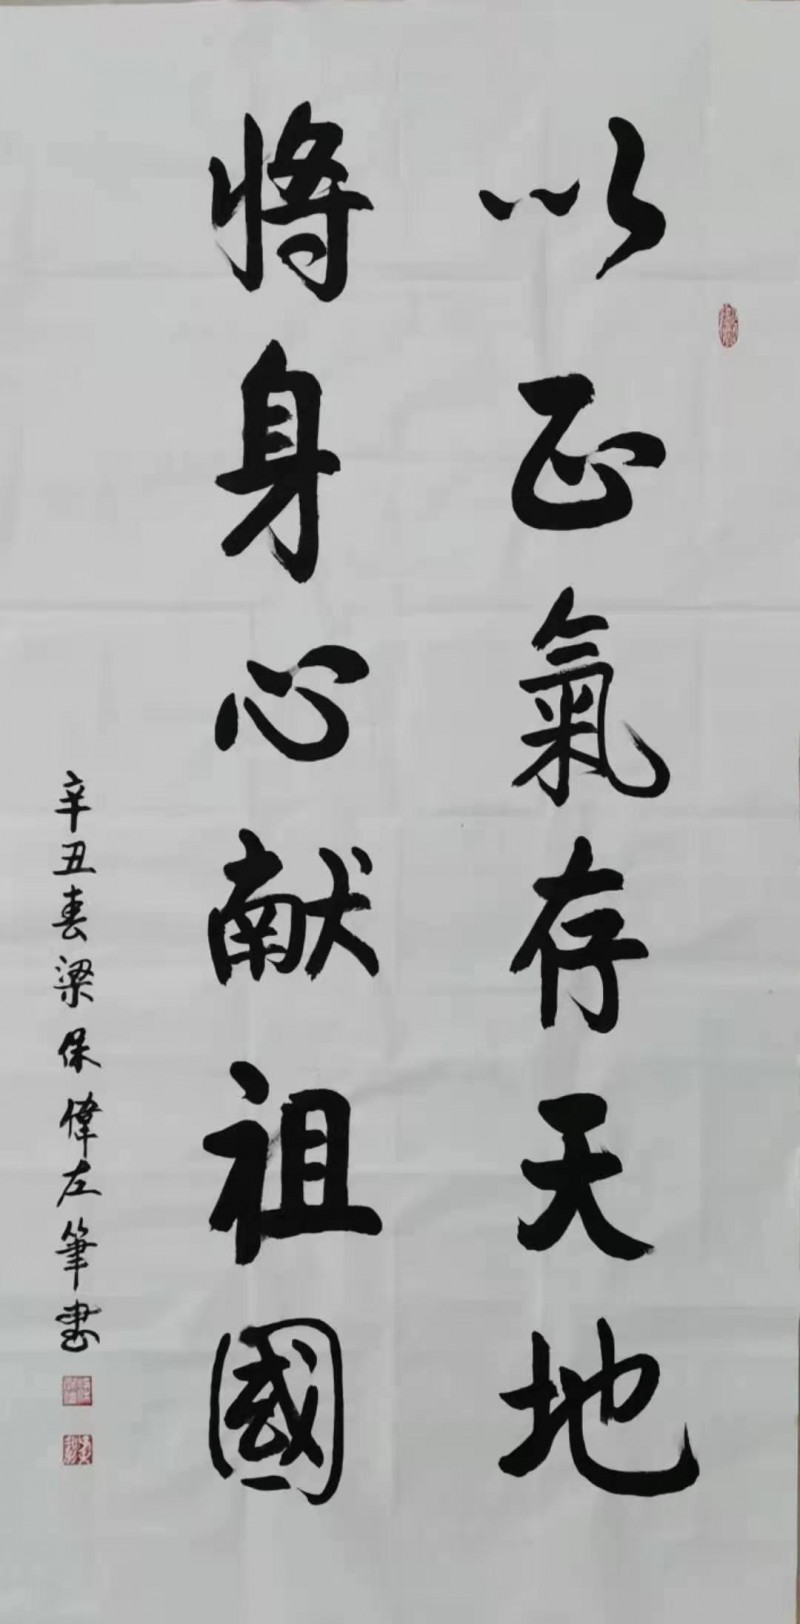 以正氣存天地
将身心献祖國
辛丑春梁保偉左筆書